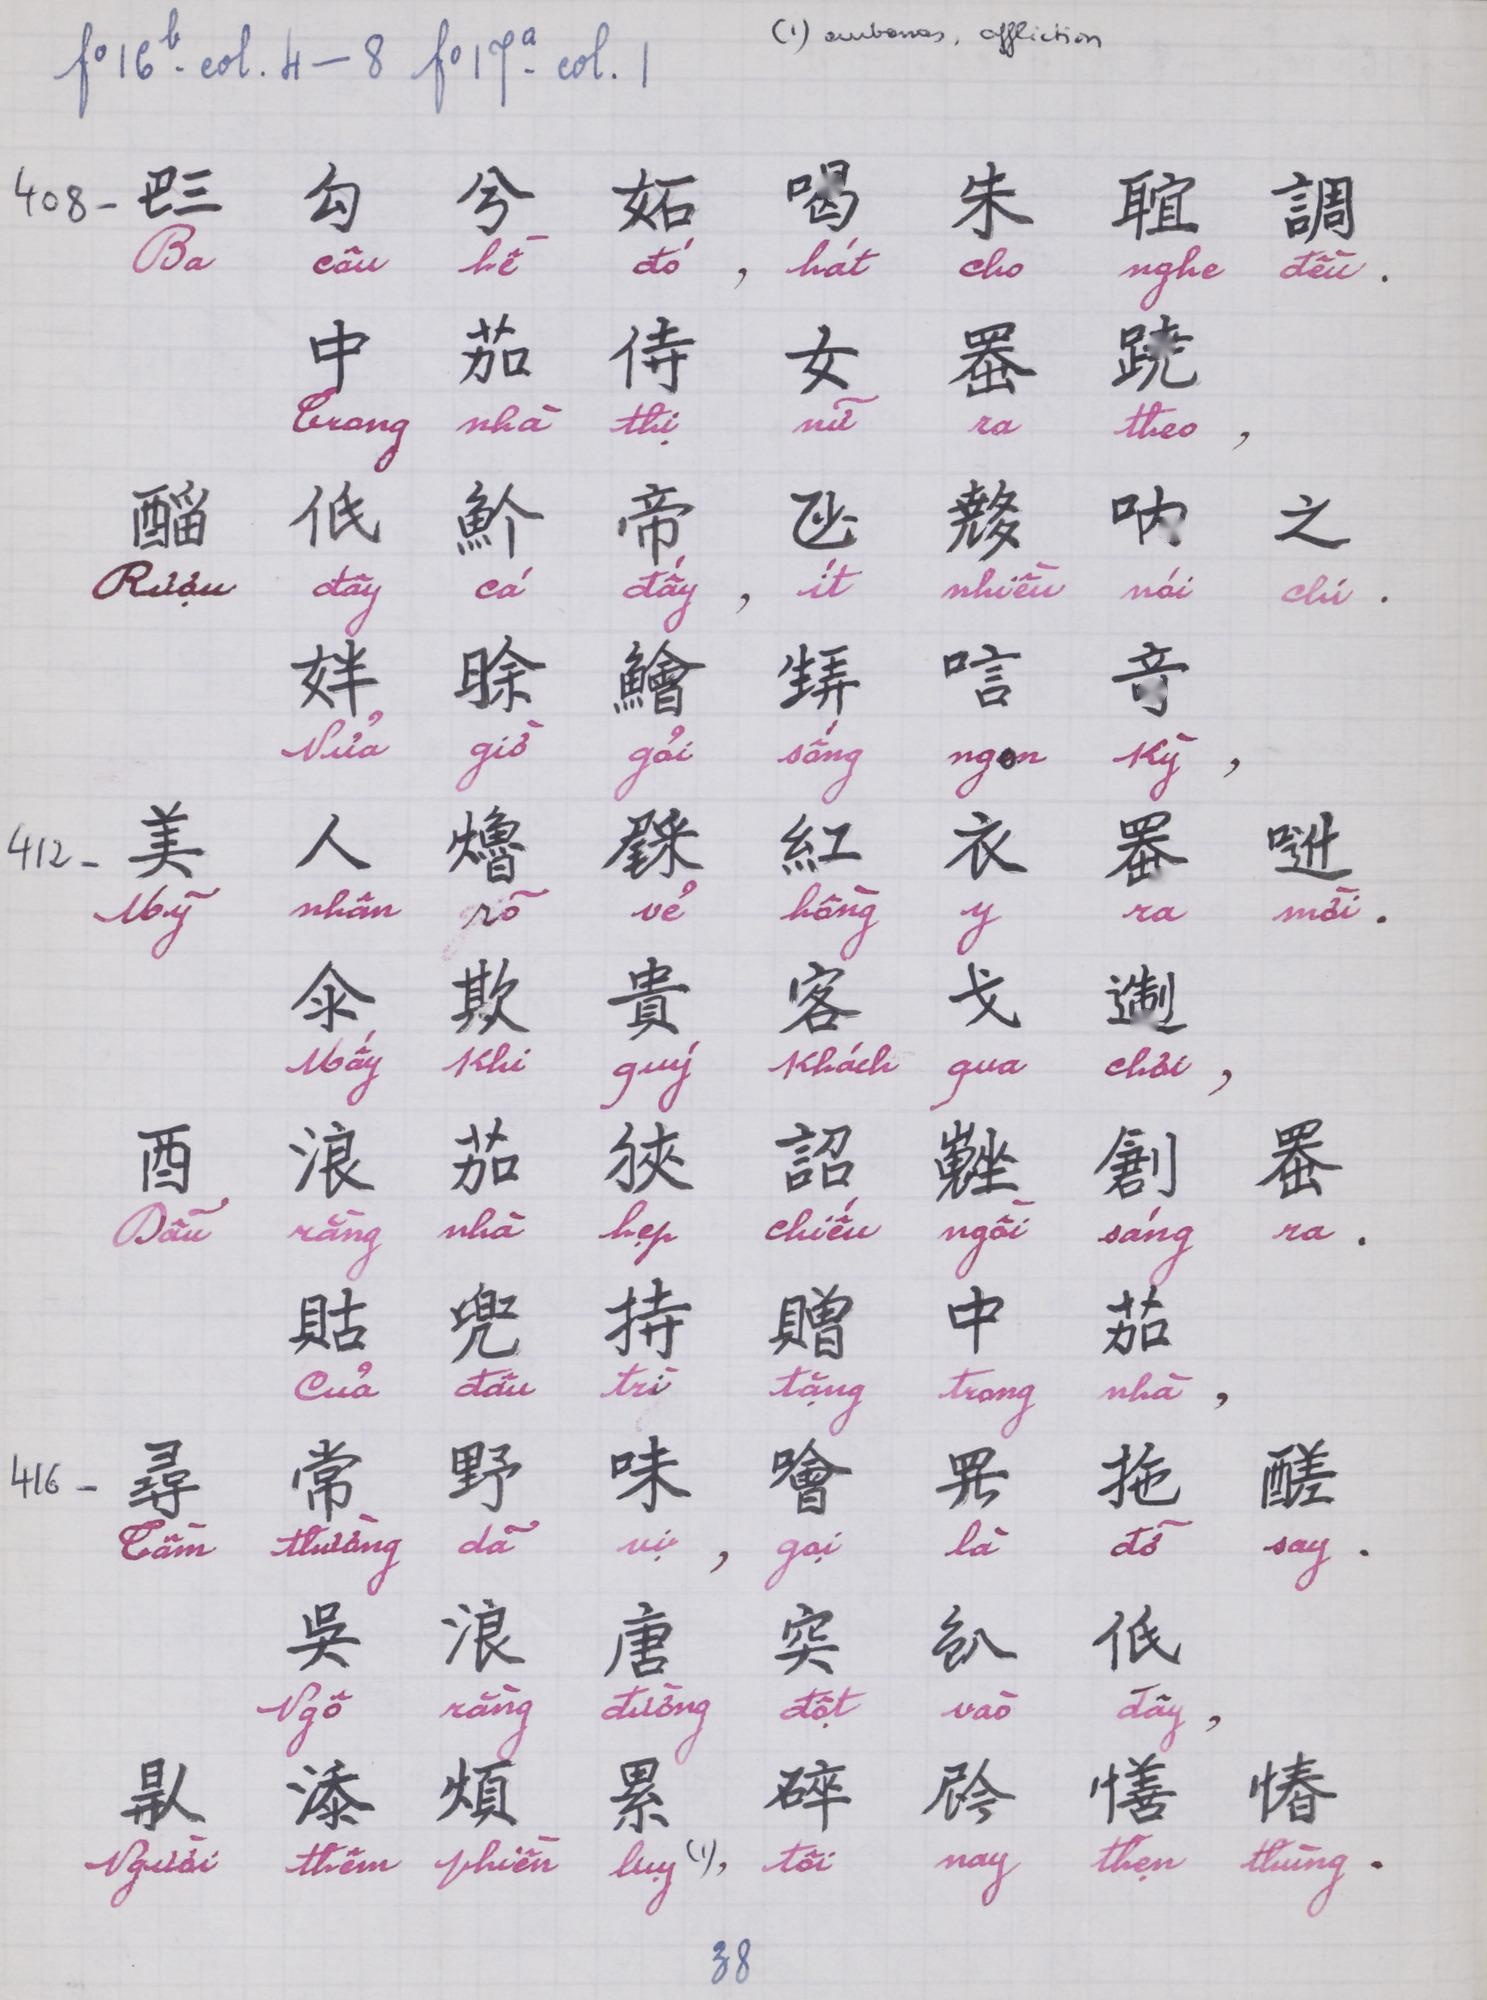 fº16ᵇ- col. 4 — 8 fº17ᵃ- col. 1
(1) embarras, affliction
408- 𠀧 勾 兮 妬 喝 朱 聢 調
Ba câu hề đó, hát cho nghe đều.
中 茄 侍 女 𦋦 蹺
Trong nhà thị nữ ra theo,
低 帝 吶 之
Rượu đây cá đấy, ít nhiều nói chi.
姅 鱠 唁 奇
Nửa giờ gỏi sống ngon kỳ,
412- 美 人 𤏧 紅 衣 𦋦
Mỹ nhân rõ vẻ hồng y ra mời.
欺 貴 客 戈
Mấy khi quý khách qua chơi,
酉 浪 茄 狹 詔 創 𦋦
Dẫu rằng nhà hẹp chiếu ngồi sáng ra.
貼 兜 持 贈 中 茄
Của đâu trì tặng trong nhà,
416- 尋 常 野 味 噲 拖 醝
Tầm thường dã vị, gọi là đỡ say.
吳 浪 唐 突 低
Ngỡ rằng đường đột vào đây,
添 煩 累 碎 𠉞 㦓 惷
Người thêm phiền luỵ⁽¹⁾, tôi nay thẹn thùng.
38